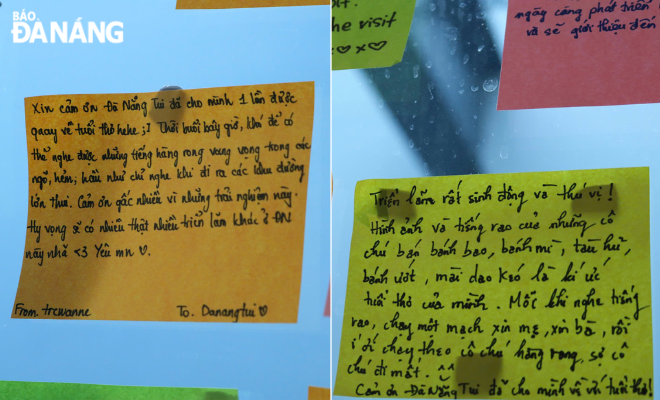 BÁO
ĐÀ NẴNG
Xin cảm ơn Đà Nẵng Tui đã cho mình 1 lần được
quay về tuổi thơ hehe ;] Thời buổi bây giờ, khó để có
thể nghe được những tiếng hàng rong vang vọng trong các
ngõ, hẻm; hầu như chỉ nghe khi đi ra các khu đường
lớn thui. Cảm ơn gấc nhiều vì những trải nghiệm này.
Hy vọng sẽ có nhiều thật nhiều triển lãm khác ở ĐN
này nhã <3 Yêu mn ♡.
From. trewanne
To. Danangtui ♡
he visit
♡ x ♡
ngày càng phát triển
và sẽ giới thiệu đến
Triển lãm rất sinh động và thú vị !
Hình ảnh và tiếng rao của những cô
chú bán bánh bao, bánh mì, tàu hũ,
bánh ướt, mài dao kéo là kí ức
tuổi thơ của mình. Mỗi khi nghe tiếng
rao, chạy một mạch xin mẹ, xin bà, rồi
í ới chạy theo cô chú hàng rong, sợ cô
chú đi mất. ^^
Cảm ơn Đà Nẵng Tui đã cho mình về với tuổi thơ!